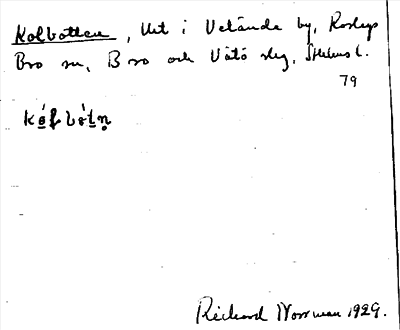 Kolbotten, Urt i Vetånda by, Roslags
Bro sn, Bro och Vätö slg, Sthlms l.
79
Richard Norrman 1929.